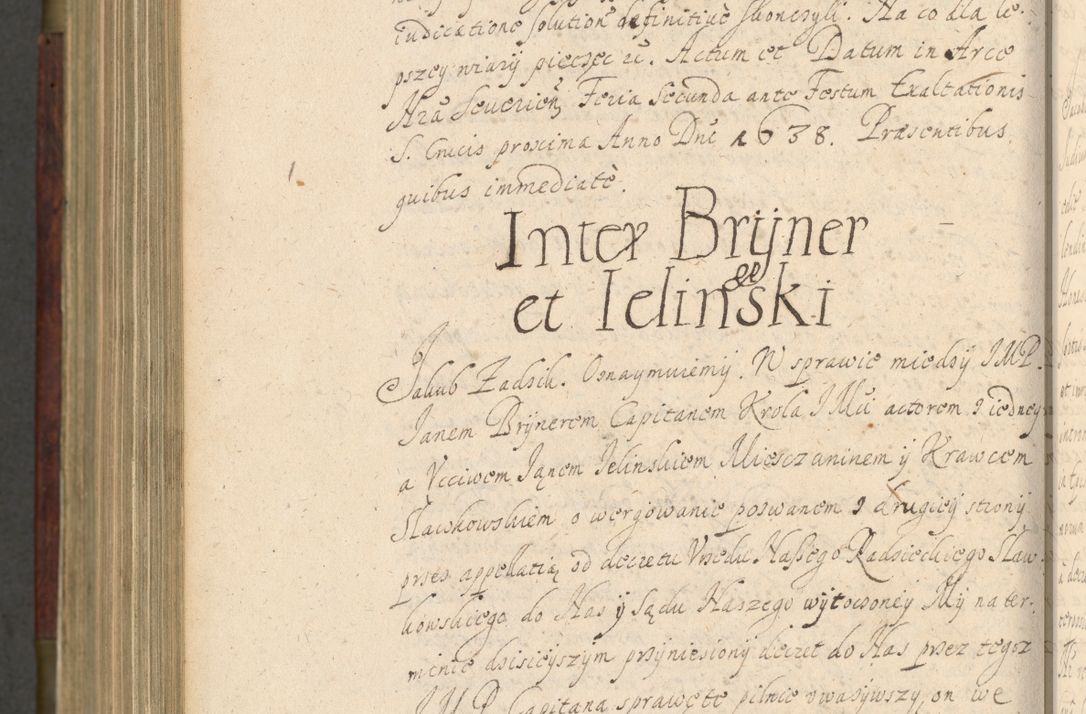 iudicatione solutioñ definitiue skonczyli. Na co dla le-
pszey wiary pieczęć etc. Actum et Datum in Arce
Nrã Seuerieñ Feria Secunda ante Festum Exaltationis
S. Crucis proxima Anno Dni 1638. Præsentibus
quibus immediatè.
Inter Brÿner
et Ielinski
Jakub Zadzik. Oznaymuiemÿ. W sprawie miedzÿ IMP.
Janem Brÿnerem Capitanem Krola IMci actorem z iedneÿ
a Vcciwem Janem Jelinskiem Miesczaninem ÿ Krawcem
Sławkowskiem o wergowanie pozwanem z drugieÿ stronÿ
przez appellatią od decretu Vrzędu Naszego Radzieckiego Sław-
kowskiego do Nas ÿ Sądu Naszego wÿtoczoneÿ Mÿ na ter-
minie dzisieÿszÿm przÿniesionÿ decret do Nas przez tegoz
IMP. Capitana sprawę tę pilnie vwazÿwszy, on we